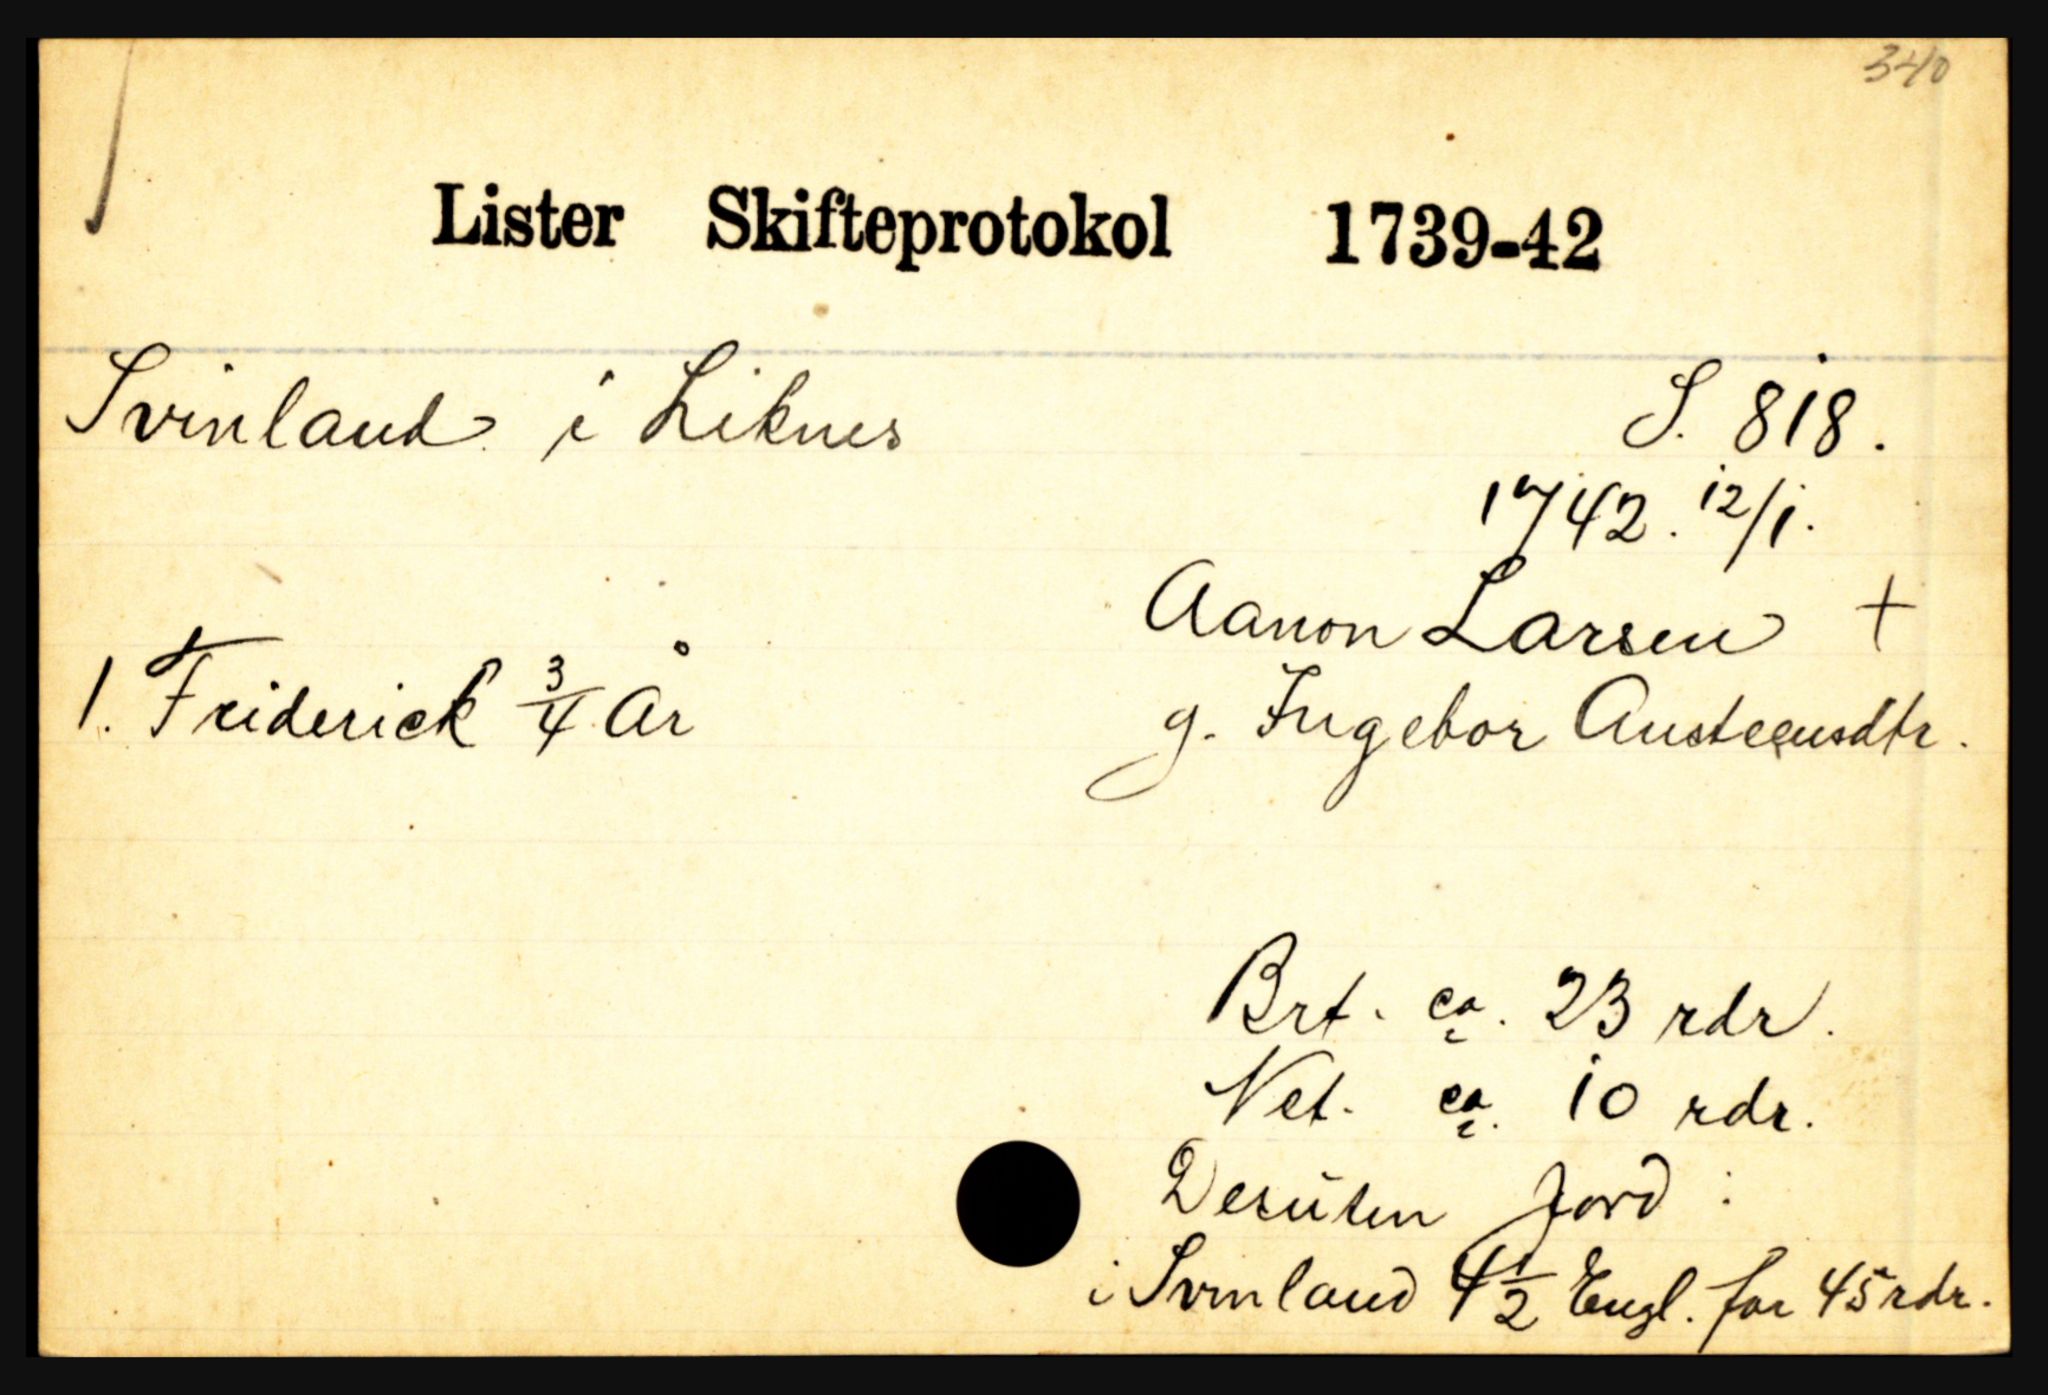 340
Lister Skifteprotokol 1739-42
Svinland i Liknes S. 818.
1742. 12/1.
Aanon Larsen +
1. Friderick 3/4 År g. Ingebor Austeensdtr.
Brt. ca. 23 rdr.
Net. ca. 10 rdr.
Desuten jord :
i Svinland 4 1/2 Engl. for 45 rdr.